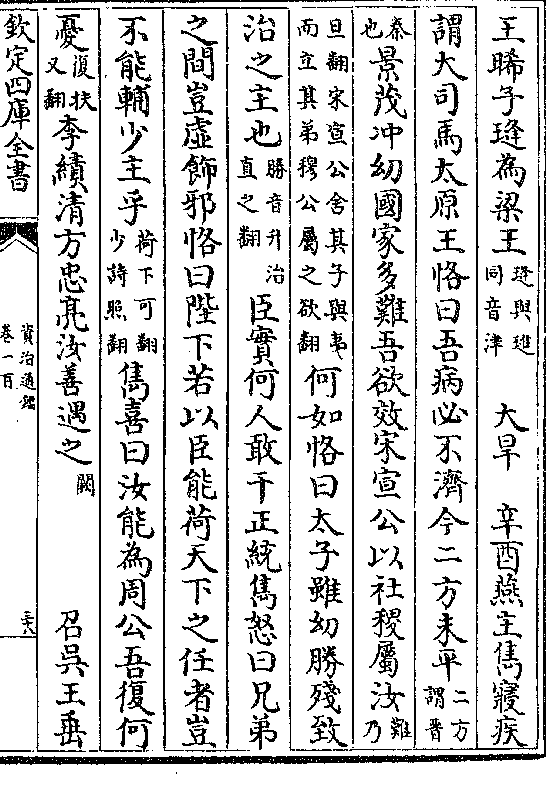 王晞子㻱為梁王㻱與璡同音津 大旱 辛酉燕主雋寢疾
謂大司馬太原王恪曰吾病必不濟今二方未平二方謂晉
秦也景茂冲幼國家多難吾欲效宋宣公以社稷屬汝難乃
旦翻宋宣公舍其子與夷而立其弟穆公屬之欲翻何如恪曰太子雖幼勝殘致
治之主也勝音升治直之翻臣實何人敢干正統雋怒曰兄弟
之間豈虛飾邪恪曰陛下若以臣能荷天下之任者豈
不能輔少主乎荷下可翻少詩照翻雋喜曰汝能為周公吾復何
憂復扶又翻李績清方忠亮汝善遇之闕 召吳王垂
欽定四庫全書 資治通鑑卷一百 三十八